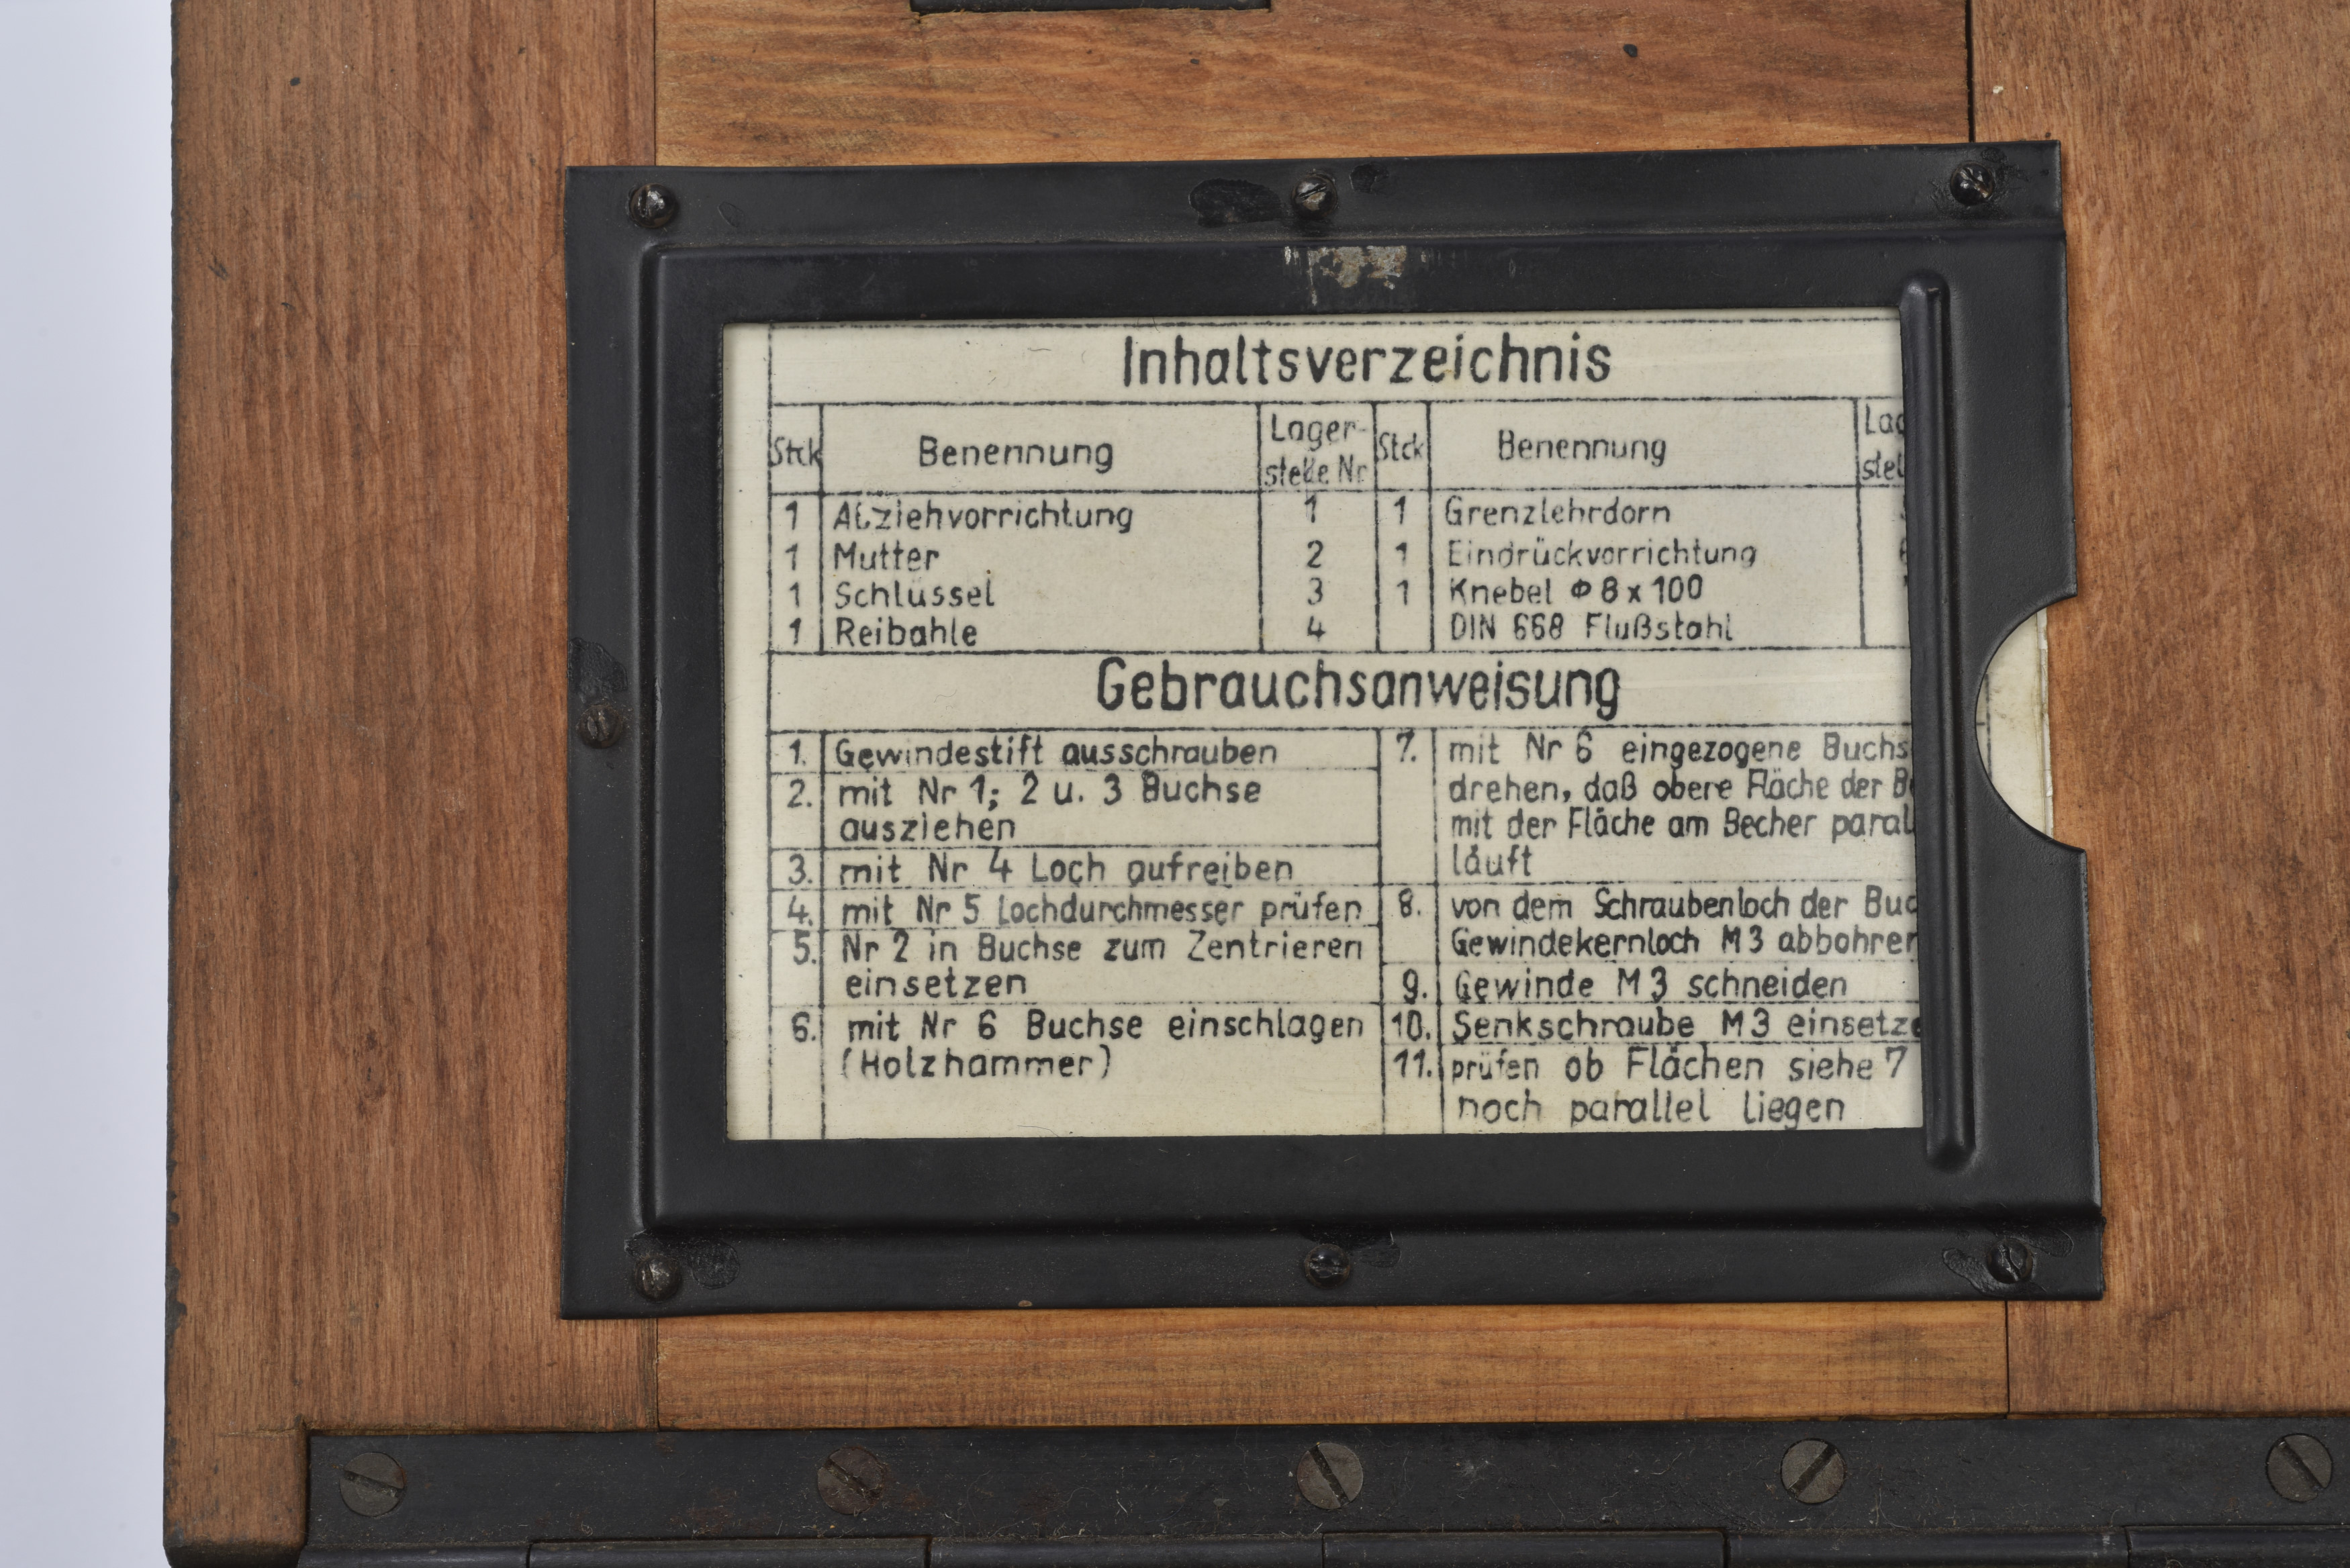 Inhaltsverzeichnis
Stck Benennung Lager- Stck Benennung
stelle Nr
1 Abziehvorrichtung 1 1 Grenzlehrdorn
1 Mutter 2 1 Eindrückvorrichtung
1 Schlüssel 3 1 Knebel Φ 8 x 100
1 Reibahle 4 DIN 668 Flußstahl
Gebrauchsanweisung
1. Gewindestift ausschrauben
2. mit Nr 1; 2 u. 3 Buchse
ausziehen
3. mit Nr 4 Loch aufreiben
4. mit Nr 5 Lochdurchmesser prüfen
5. Nr 2 in Buchse zum Zentrieren
einsetzen
6. mit Nr 6 Buchse einschlagen
(Holzhammer)
7. mit Nr 6 eingezogene Buchs
drehen, daß obere Fläche der
mit der Fläche am Becher paral
läuft
8. von dem Schraubenloch der Buc
Gewindekernloch M3 abbohren
9. Gewinde M3 schneiden
10. Senkschraube M3 einsetze
11. prüfen ob Flächen siehe 7
noch parallel liegen